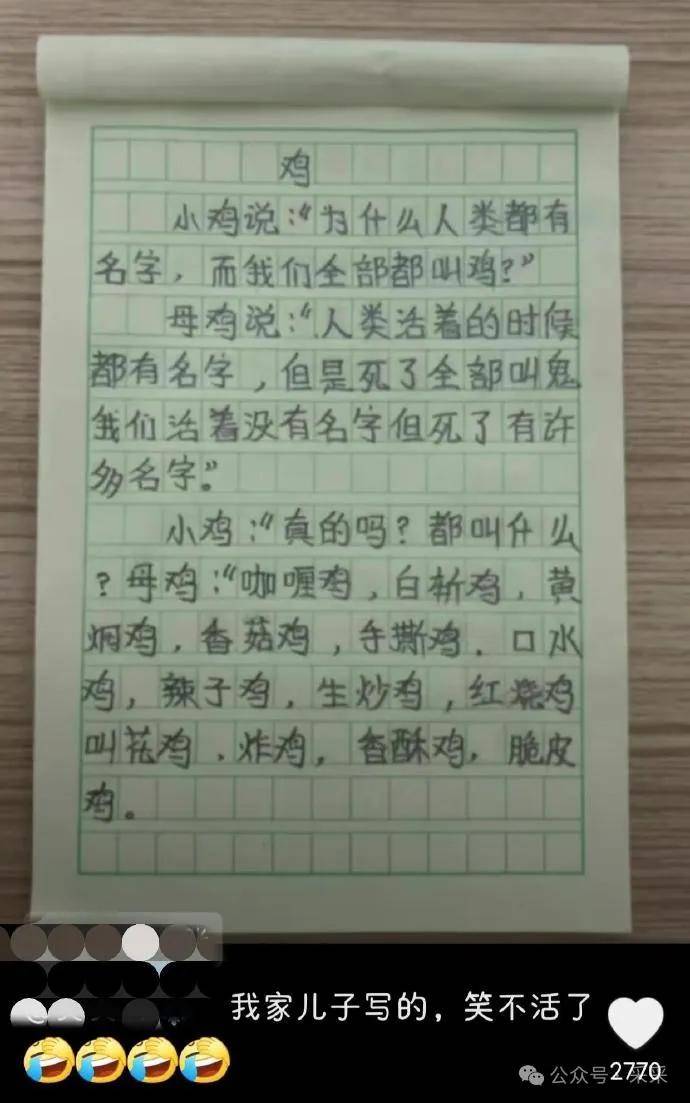 鸡
小鸡说:“为什么人类都有
名字,而我们全部都叫鸡?”
母鸡说:“人类活着的时候
都有名字,但是死了全部叫鬼
我们活着没有名字但死了有许
多名字。”
小鸡:“真的吗?都叫什么
?母鸡:“咖喱鸡,白斩鸡,黄
焖鸡,香菇鸡,手撕鸡.口水
鸡,辣子鸡,生炒鸡,红烧鸡
叫花鸡.炸鸡,香酥鸡,脆皮
鸡。
我家儿子写的,笑不活了
2770
公众号
采采